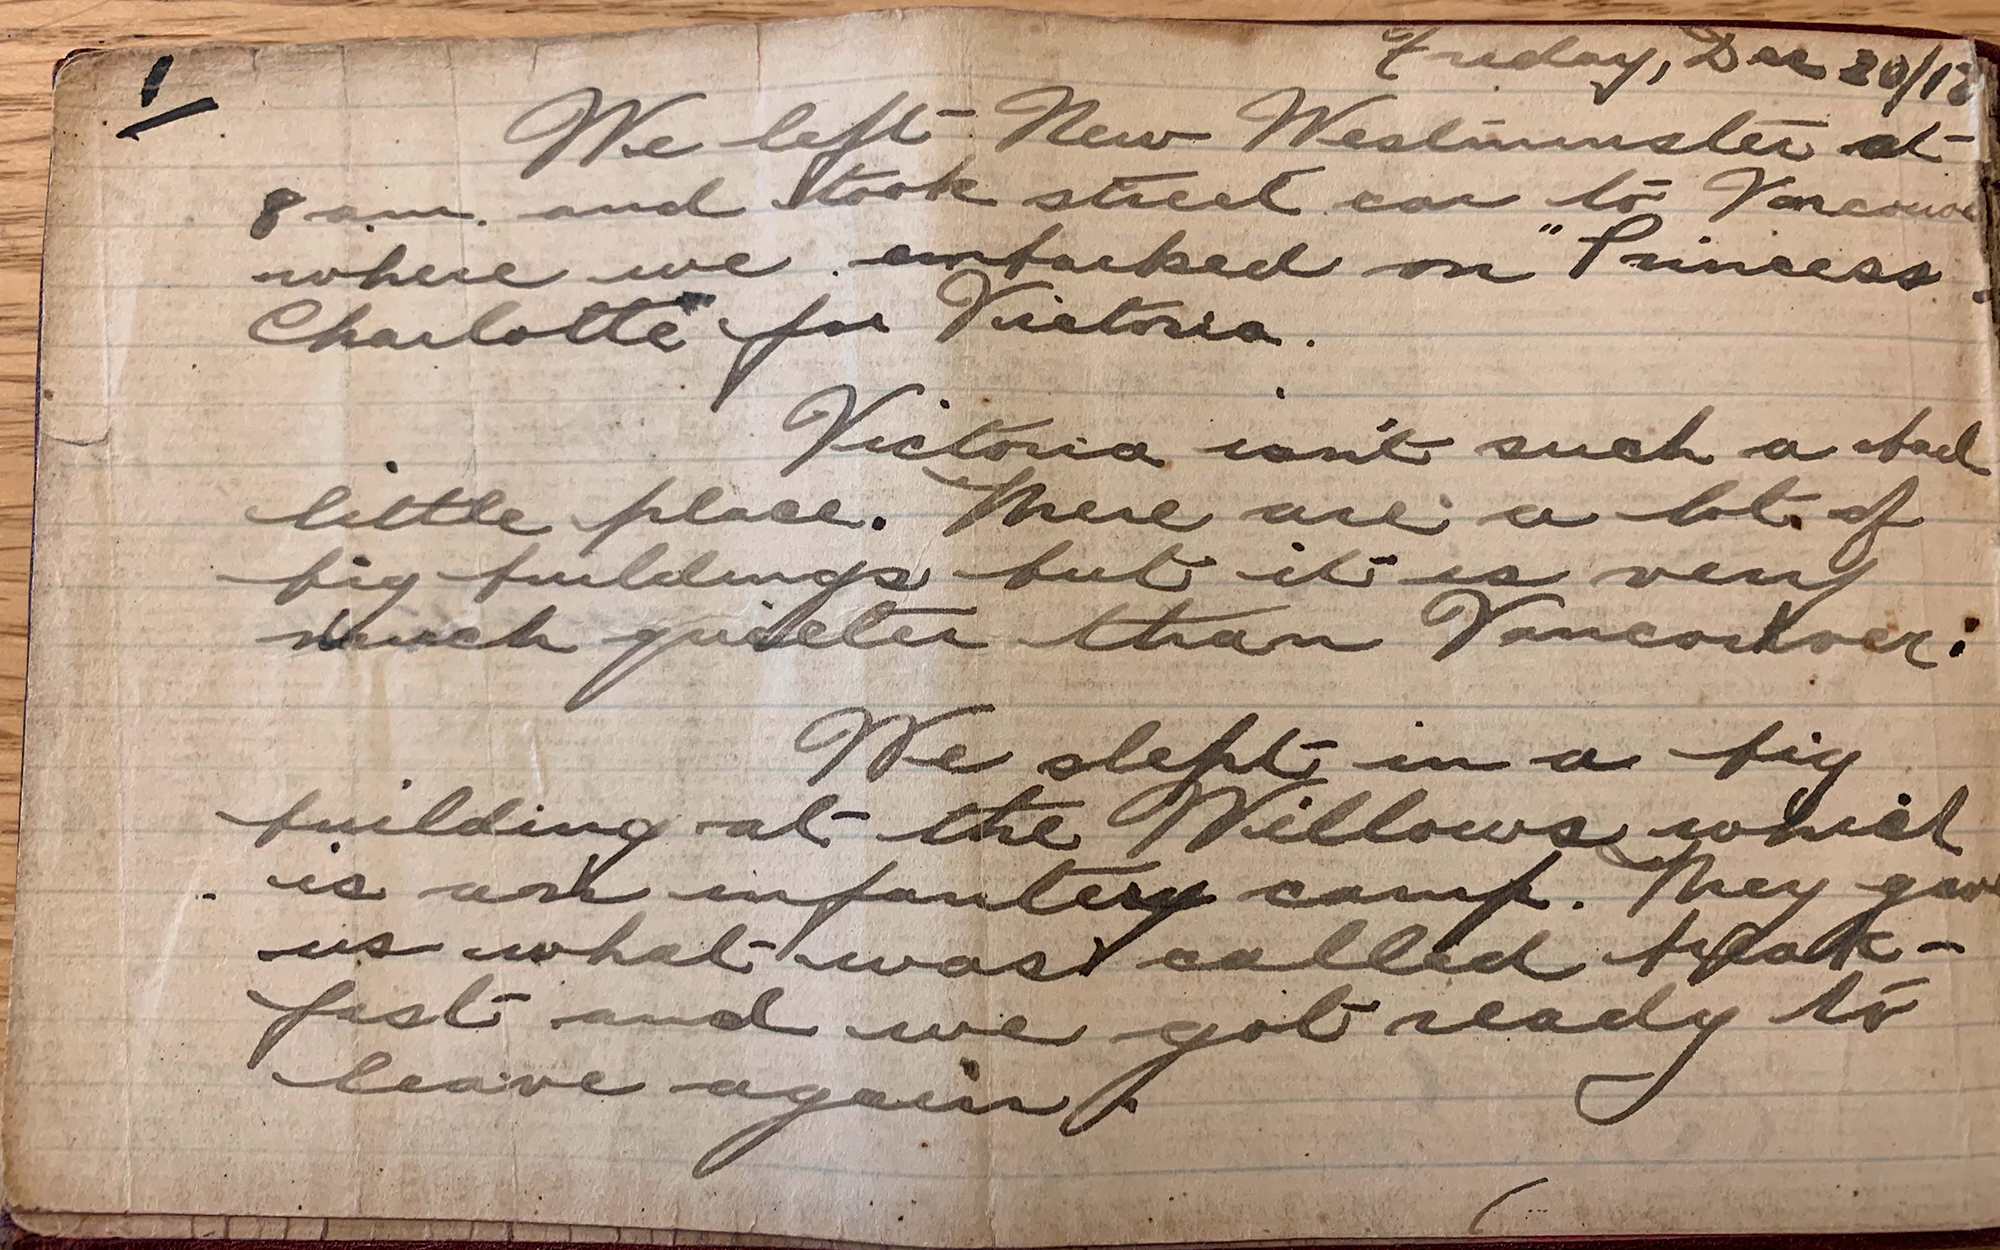 1
Friday, Dec 20/18
We left New Westminster at
8 am. and took street car to Vancouver
where we embarked on "Princess
Charlotte" for Victoria.
Victoria isn't such a bad
little place. There are a lot of
big buildings but it is very
much quieter than Vancouver.
We slept in a big
building at the Willows which
is an infantery camp. They gave
us what was called break-
fast and we got ready to
leave again.